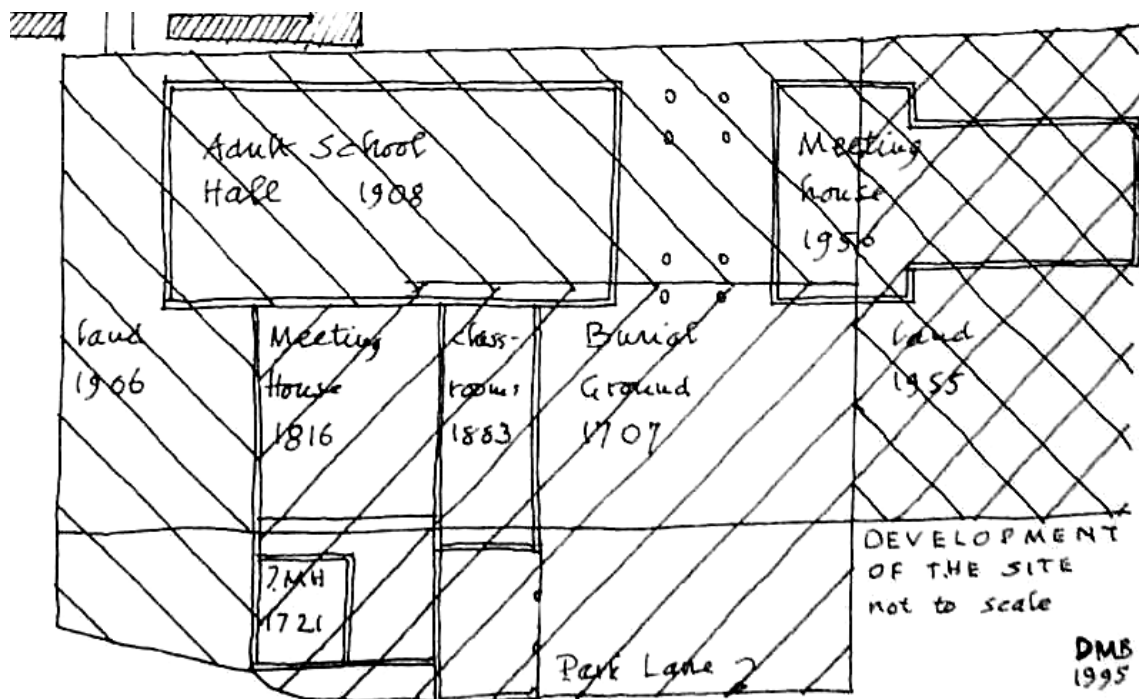 Adult School
Hall 1908
Meeting
house
1956
land
1906
Meeting
House
1816
class-
rooms
1883
Burial
Ground
1707
land
1955
?MH
1721
DEVELOPMENT
OF THE SITE
not to scale
Park Lane
DMB
1995